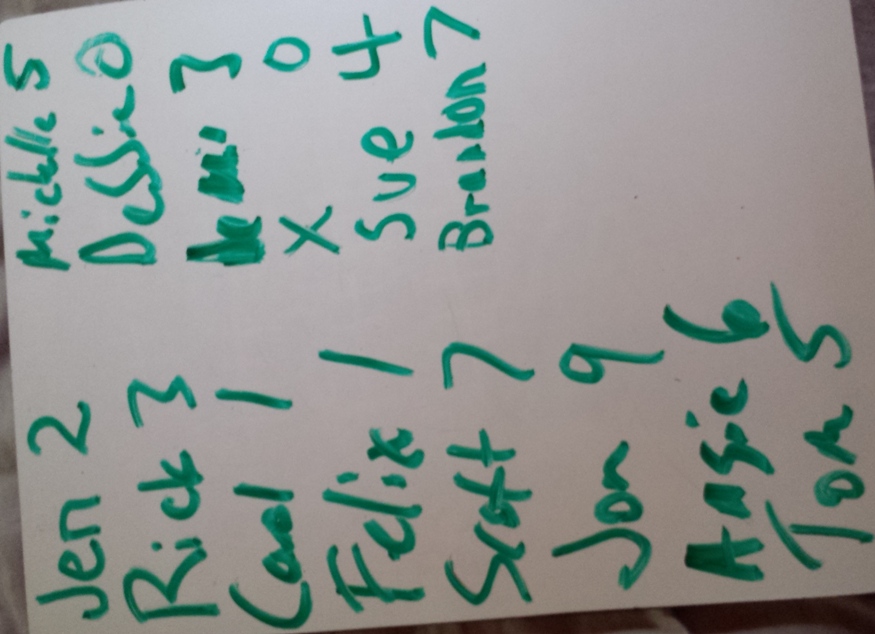 Jen 2
Rick 3
Carol 1
Felix 1
Scott 7
Jon 9
Angie 6
Tom 5
Michelle 5
Dessie 0
3
X 0
Sue 4
Brandon 7